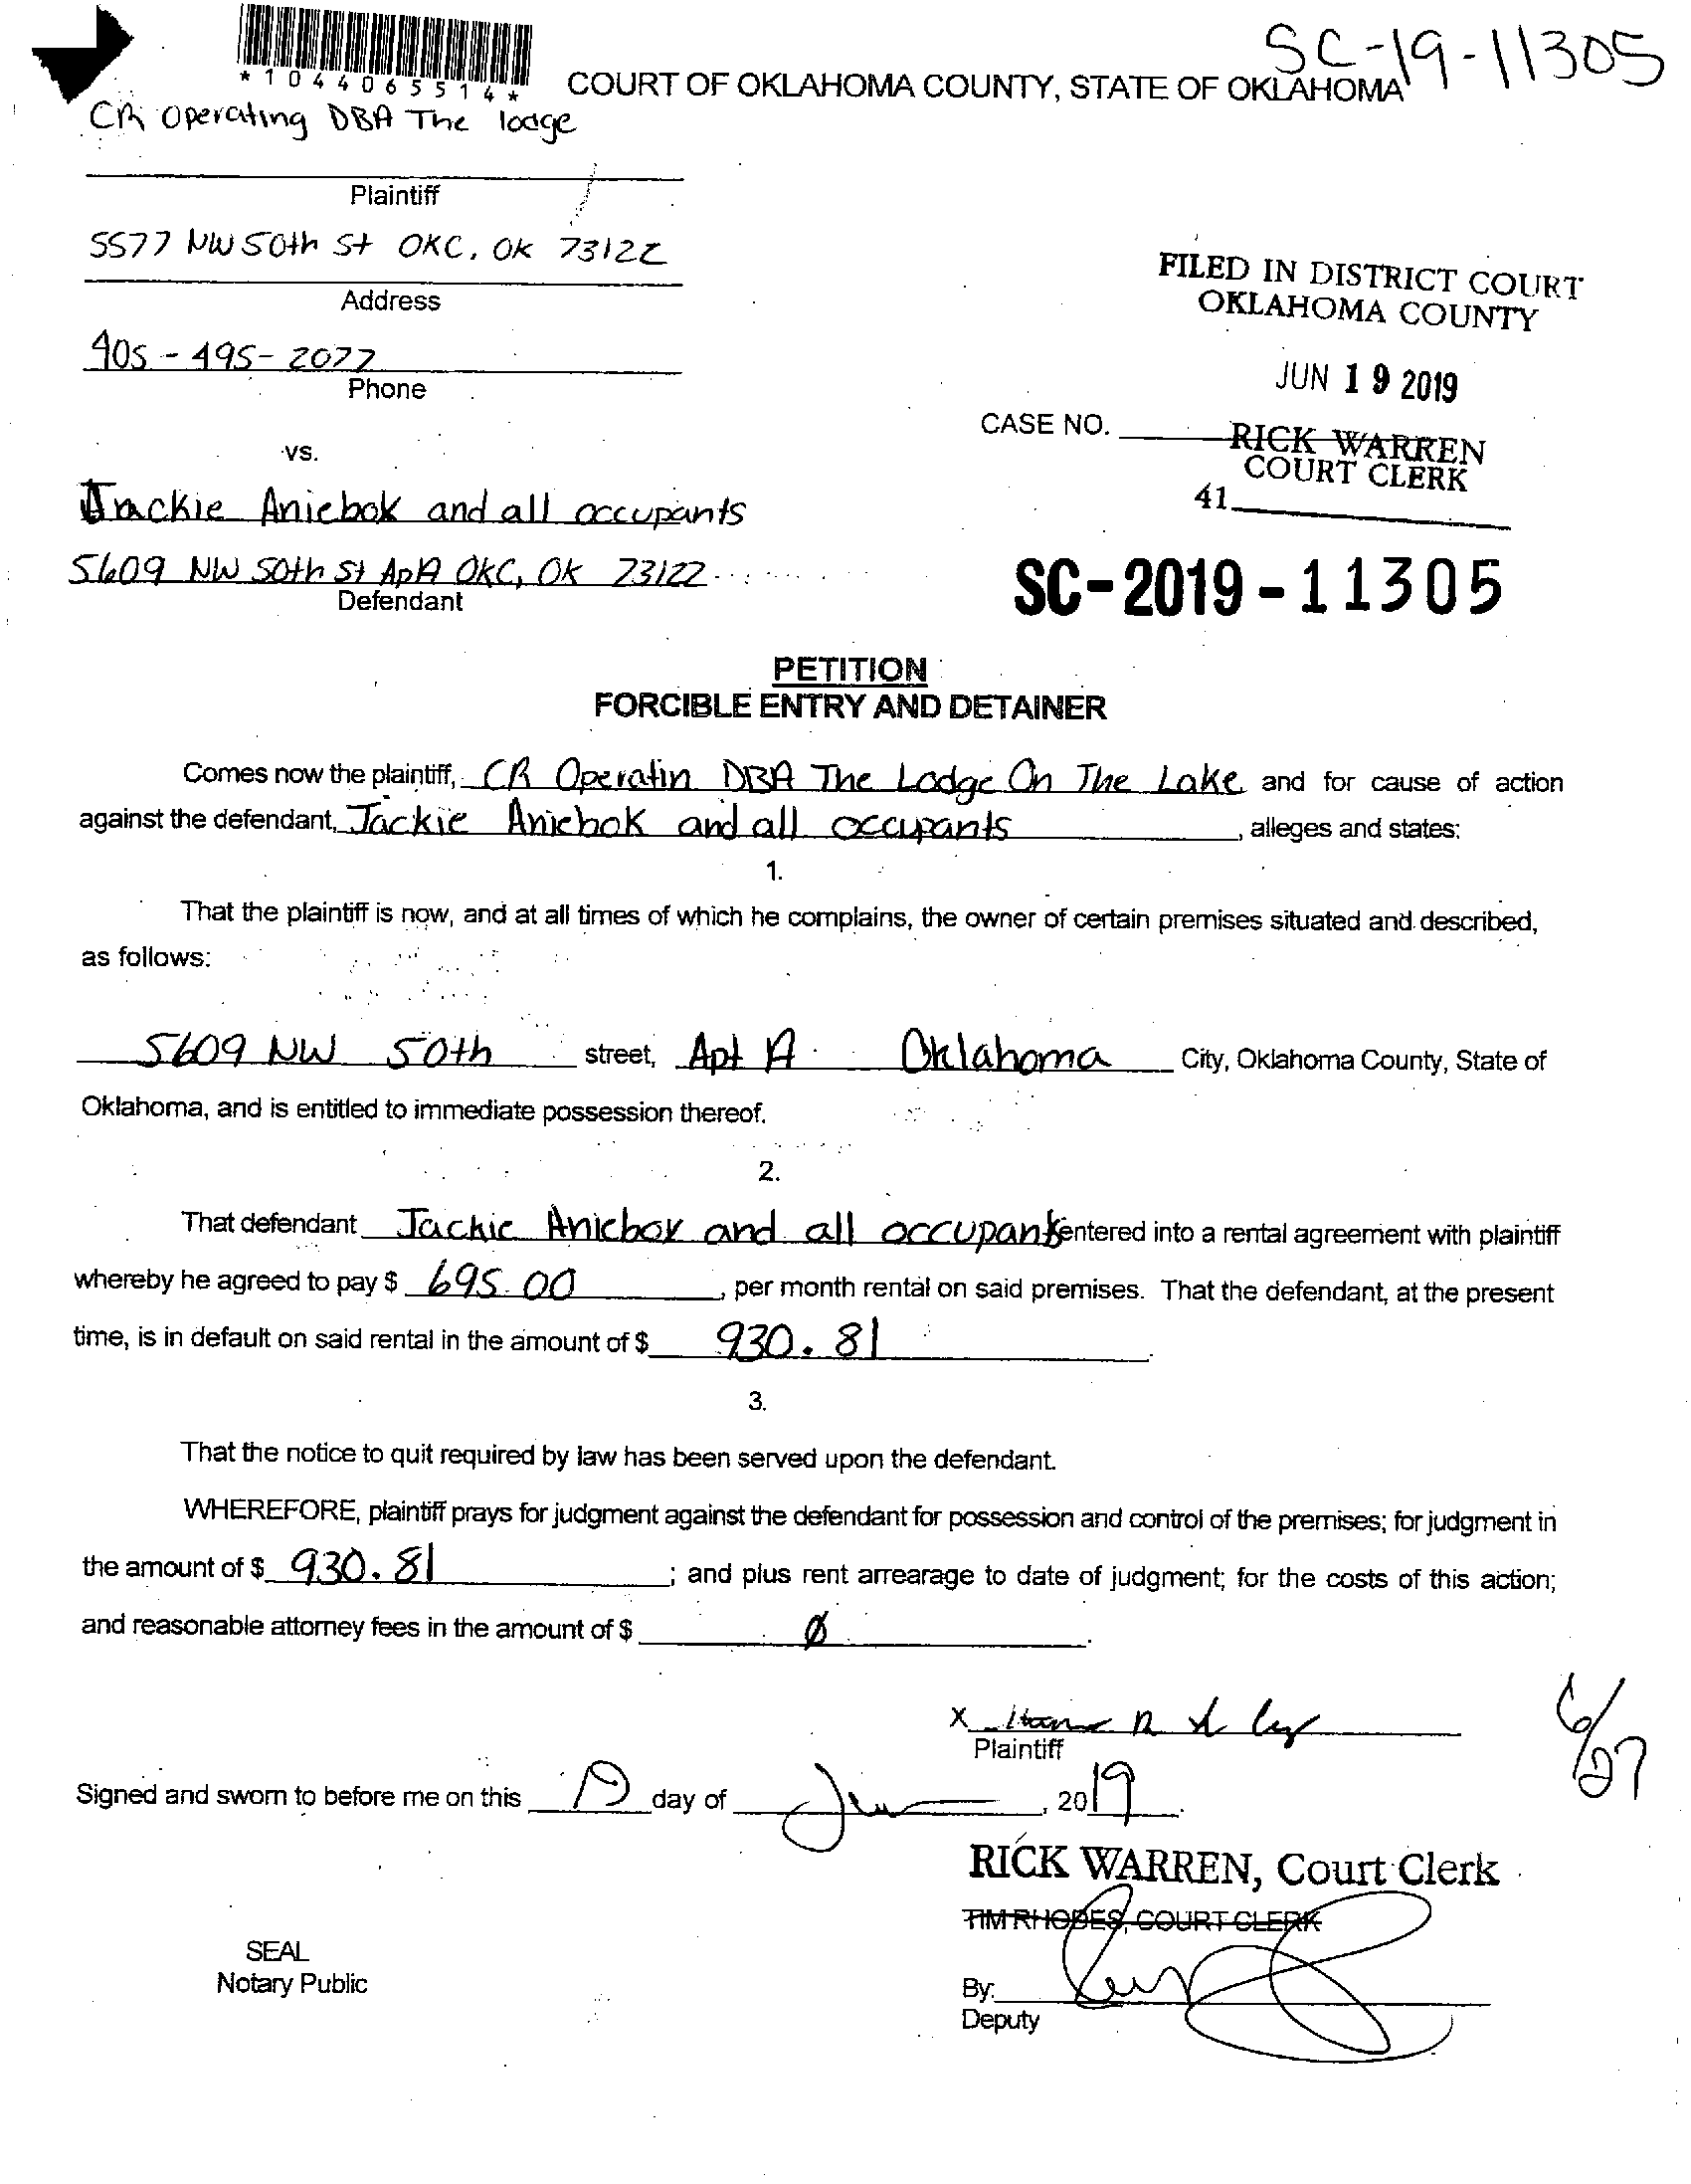 SC-19-11305
*1044065514*
COURT OF OKLAHOMA COUNTY, STATE OF OKLAHOMA
CR Operating DBA The lodge
Plaintiff
5577 NW 50th St OKC, OK 73122
Address
405-495-2077
Phone
FILED IN DISTRICT COURT
OKLAHOMA COUNTY
JUN 19 2019
CASE NO.
RICK WARREN
COURT CLERK
41
vs.
Jackie Aniebok and all occupants
5609 NW 50th St Ap A OKC, OK 73122
Defendant
SC-2019-11305
PETITION
FORCIBLE ENTRY AND DETAINER
Comes now the plaintiff, CR Operatin DBA The Lodge On The Lake and for cause of action
against the defendant, Jackie Aniebok and all occupants, alleges and states:
1.
That the plaintiff is now, and at all times of which he complains, the owner of certain premises situated and described,
as follows:
5609 NW 50th street, Apt A Oklahoma City, Oklahoma County, State of
Oklahoma, and is entitled to immediate possession thereof.
2.
That defendant Jackie Aniebok and all occupants entered into a rental agreement with plaintiff
whereby he agreed to pay $ 695.00, per month rental on said premises. That the defendant, at the present
time, is in default on said rental in the amount of $ 930.81.
3.
That the notice to quit required by law has been served upon the defendant.
WHEREFORE, plaintiff prays for judgment against the defendant for possession and control of the premises; for judgment in
the amount of $ 930.81; and plus rent arrearage to date of judgment; for the costs of this action;
and reasonable attorney fees in the amount of $ Ø.
X
Plaintiff
6/27
Signed and sworn to before me on this 19 day of June, 2019.
RICK WARREN, Court Clerk
TIM RHODES, COURT CLERK
SEAL
Notary Public
By:
Deputy